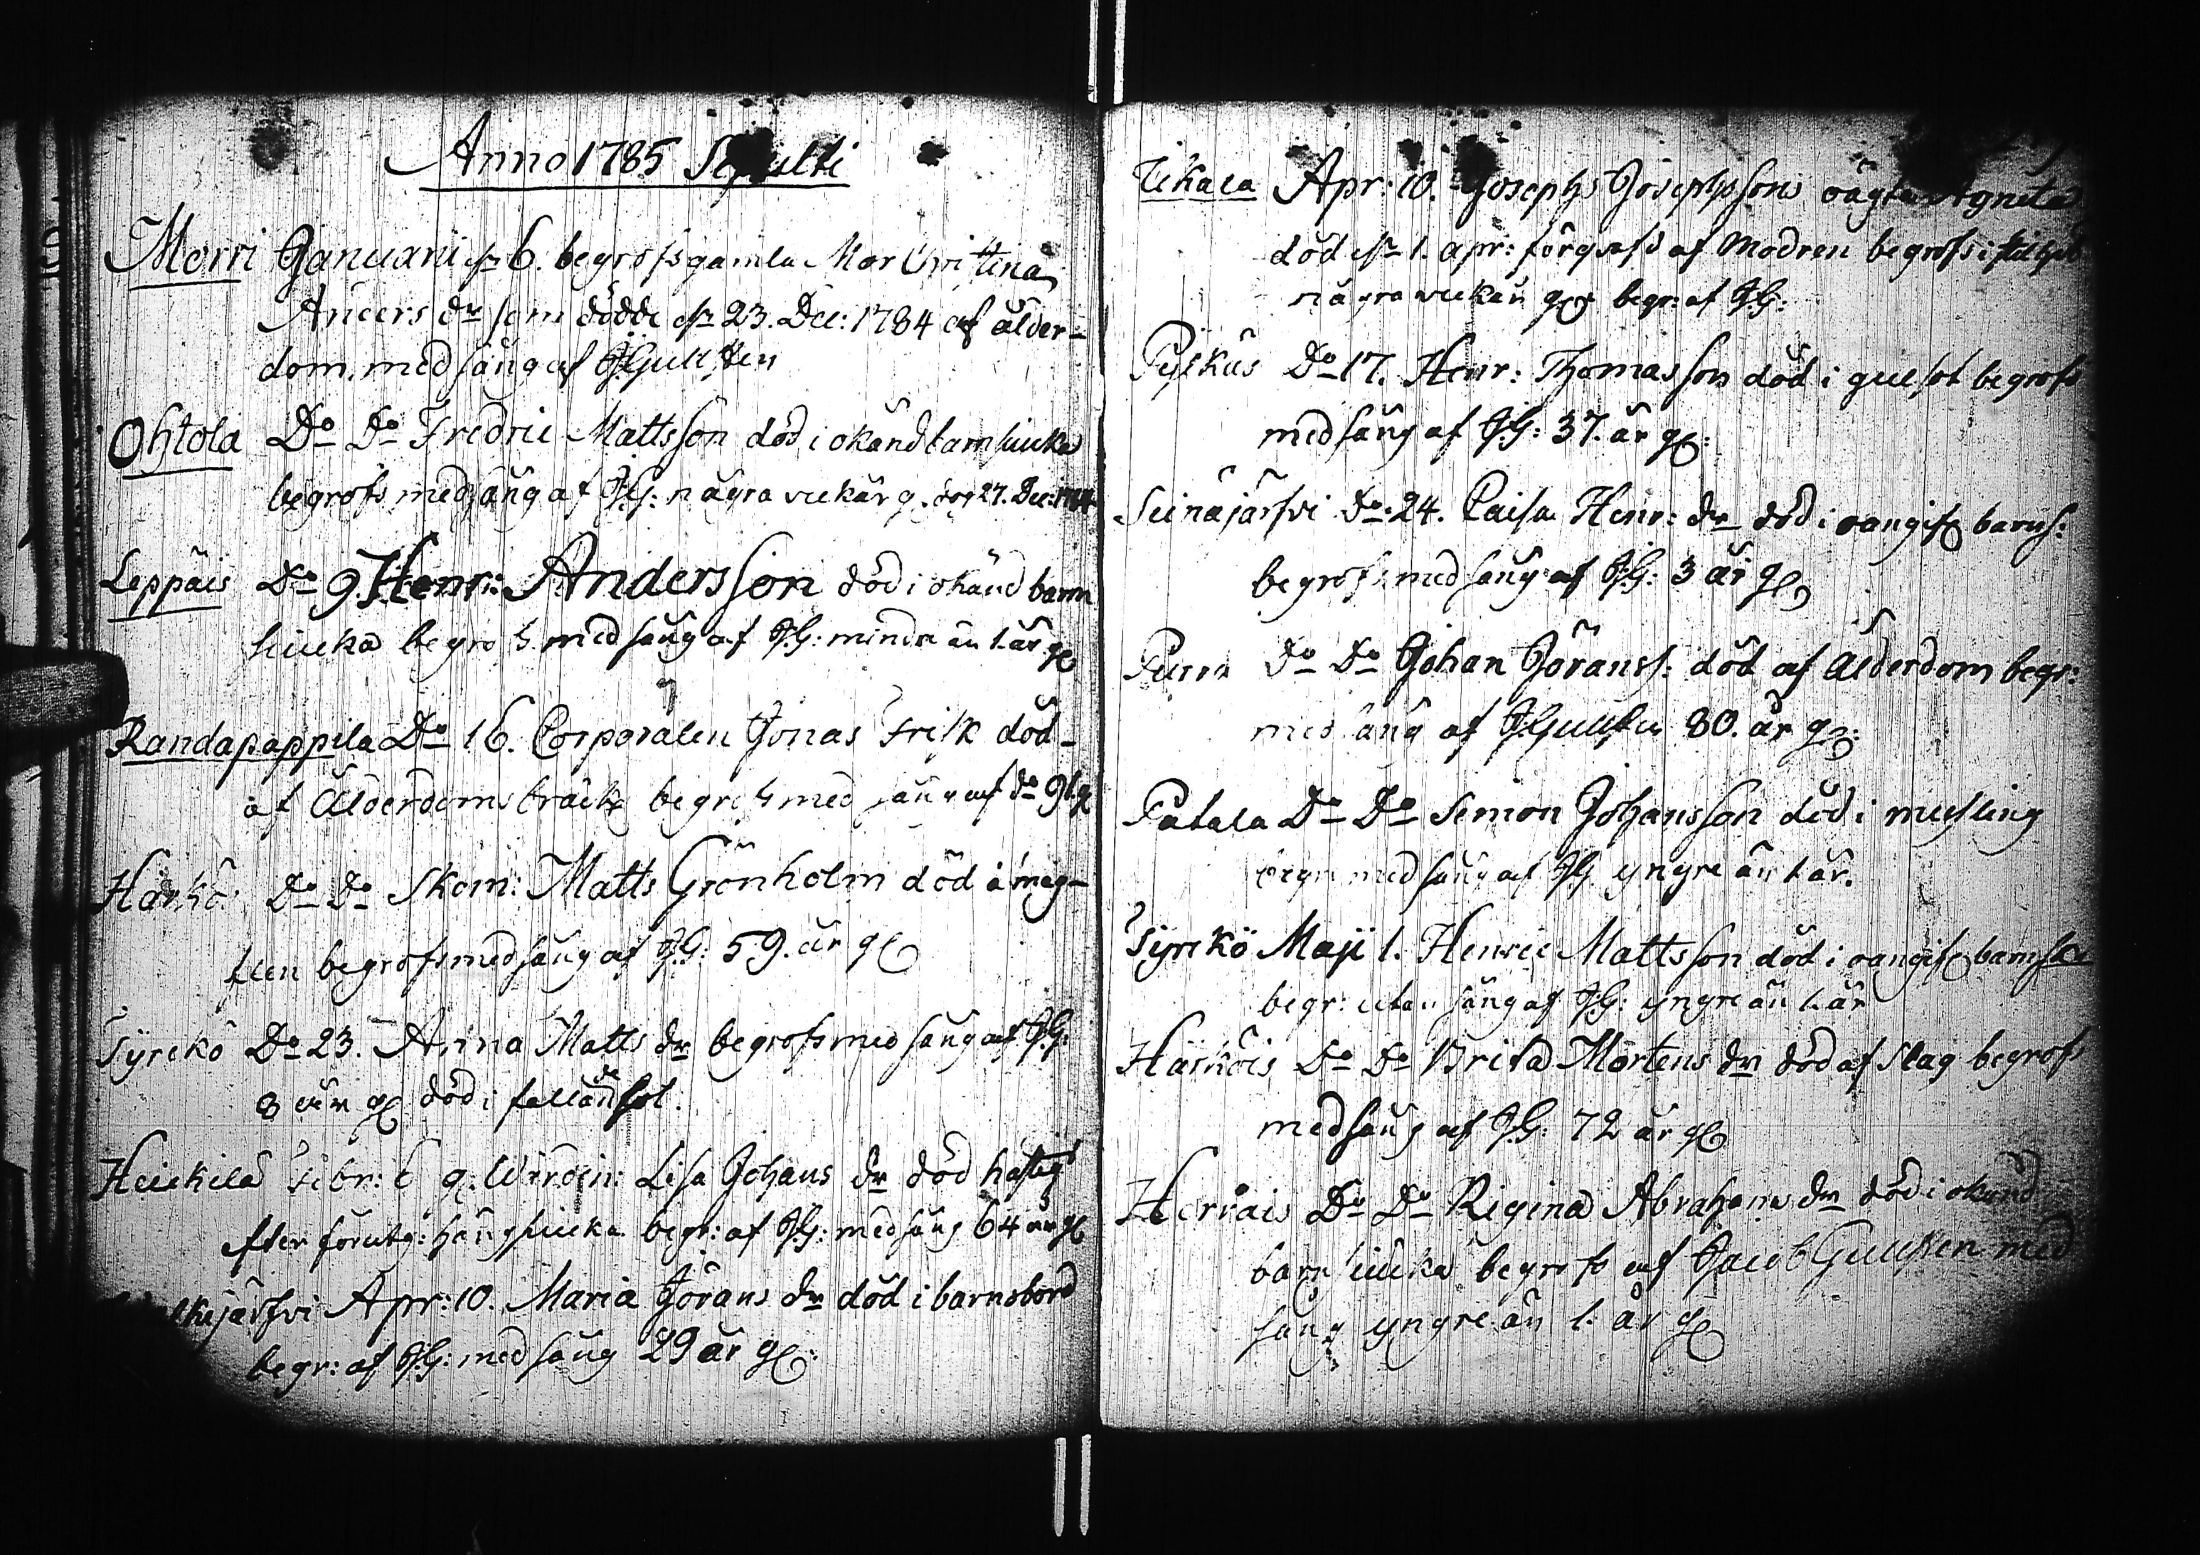 Anno 1785 Sepulti
Morri Januarii d. 6. begrofs gamla Mor Cristina
Anders dr som dödde d. 23. Dec: 1784 af ålder-
dom, med sång af J Gullsten
Ohtola Do Do Fredric Mattsson död i okänd barnsiuka
begrofs med sång af J.G: några vekår g. dog 27. Dec: 1784
Leppäis Do 9. Henr: Andersson död i okänd barn
siuka begrofs med sång af J.G: mindre än 1. år gl
Randapappila Do 16. Corporalen Jonas Frisk död
af Ålderdoms bräck begrofs med sång af do 91. g
Harkö: Do Do Skom: Matts Grönholm död i mag-
begrofs med sång af J.G: 59. år gl
Tyrckö Do 23. Anna Matts dr begrofs med sång af J.G:
8 år gl död i fallandesot.
Heickilä Febr: 6 Lisa Johans dr död hastigt
efter förutg: siucka begr: af J.G: med sång 64 år gl
järfvi Apr: 10. Maria Jörans dr död i barnsbörd
begr: af J.G: med sång 29 år gl:
Uckala Apr: 10. Josephs Josephssons oägta Agneta
död d. 1. apr: förqvafd af Modren begrofs i
några veckan gl begr: af J.G:
Pyskus Do 17. Henr: Thomasson död i gulsot begrofs
med sång af J.G: 37. år gl:
Seinäjärfvi Do: 24. Caisa Henr: dr död i oangifv barns:
begrofs med sång af J.G: 3 år gl
Purra Do Do Johan Jöranss: död af Ålderdom begr:
med sång af J Gullsten 80. år gl:
Patala Do Do Simon Johansson död i mussling
begr. med sång af J.G. yngre än 1. år.
Tyrckö Maji 1. Henric Mattsson död i oangifv barnsk
begr: utan sång af J.G: yngre än 1. år
Härköis Do Do Brita Mårtens dr död af Slag begrofs
med sång af J.G: 72 år gl
Herrais Do Do Regina Abrahams dr död i okänd
barnsiuka begrofs af Jacob Gullsten med
sång yngre än 1. år gl